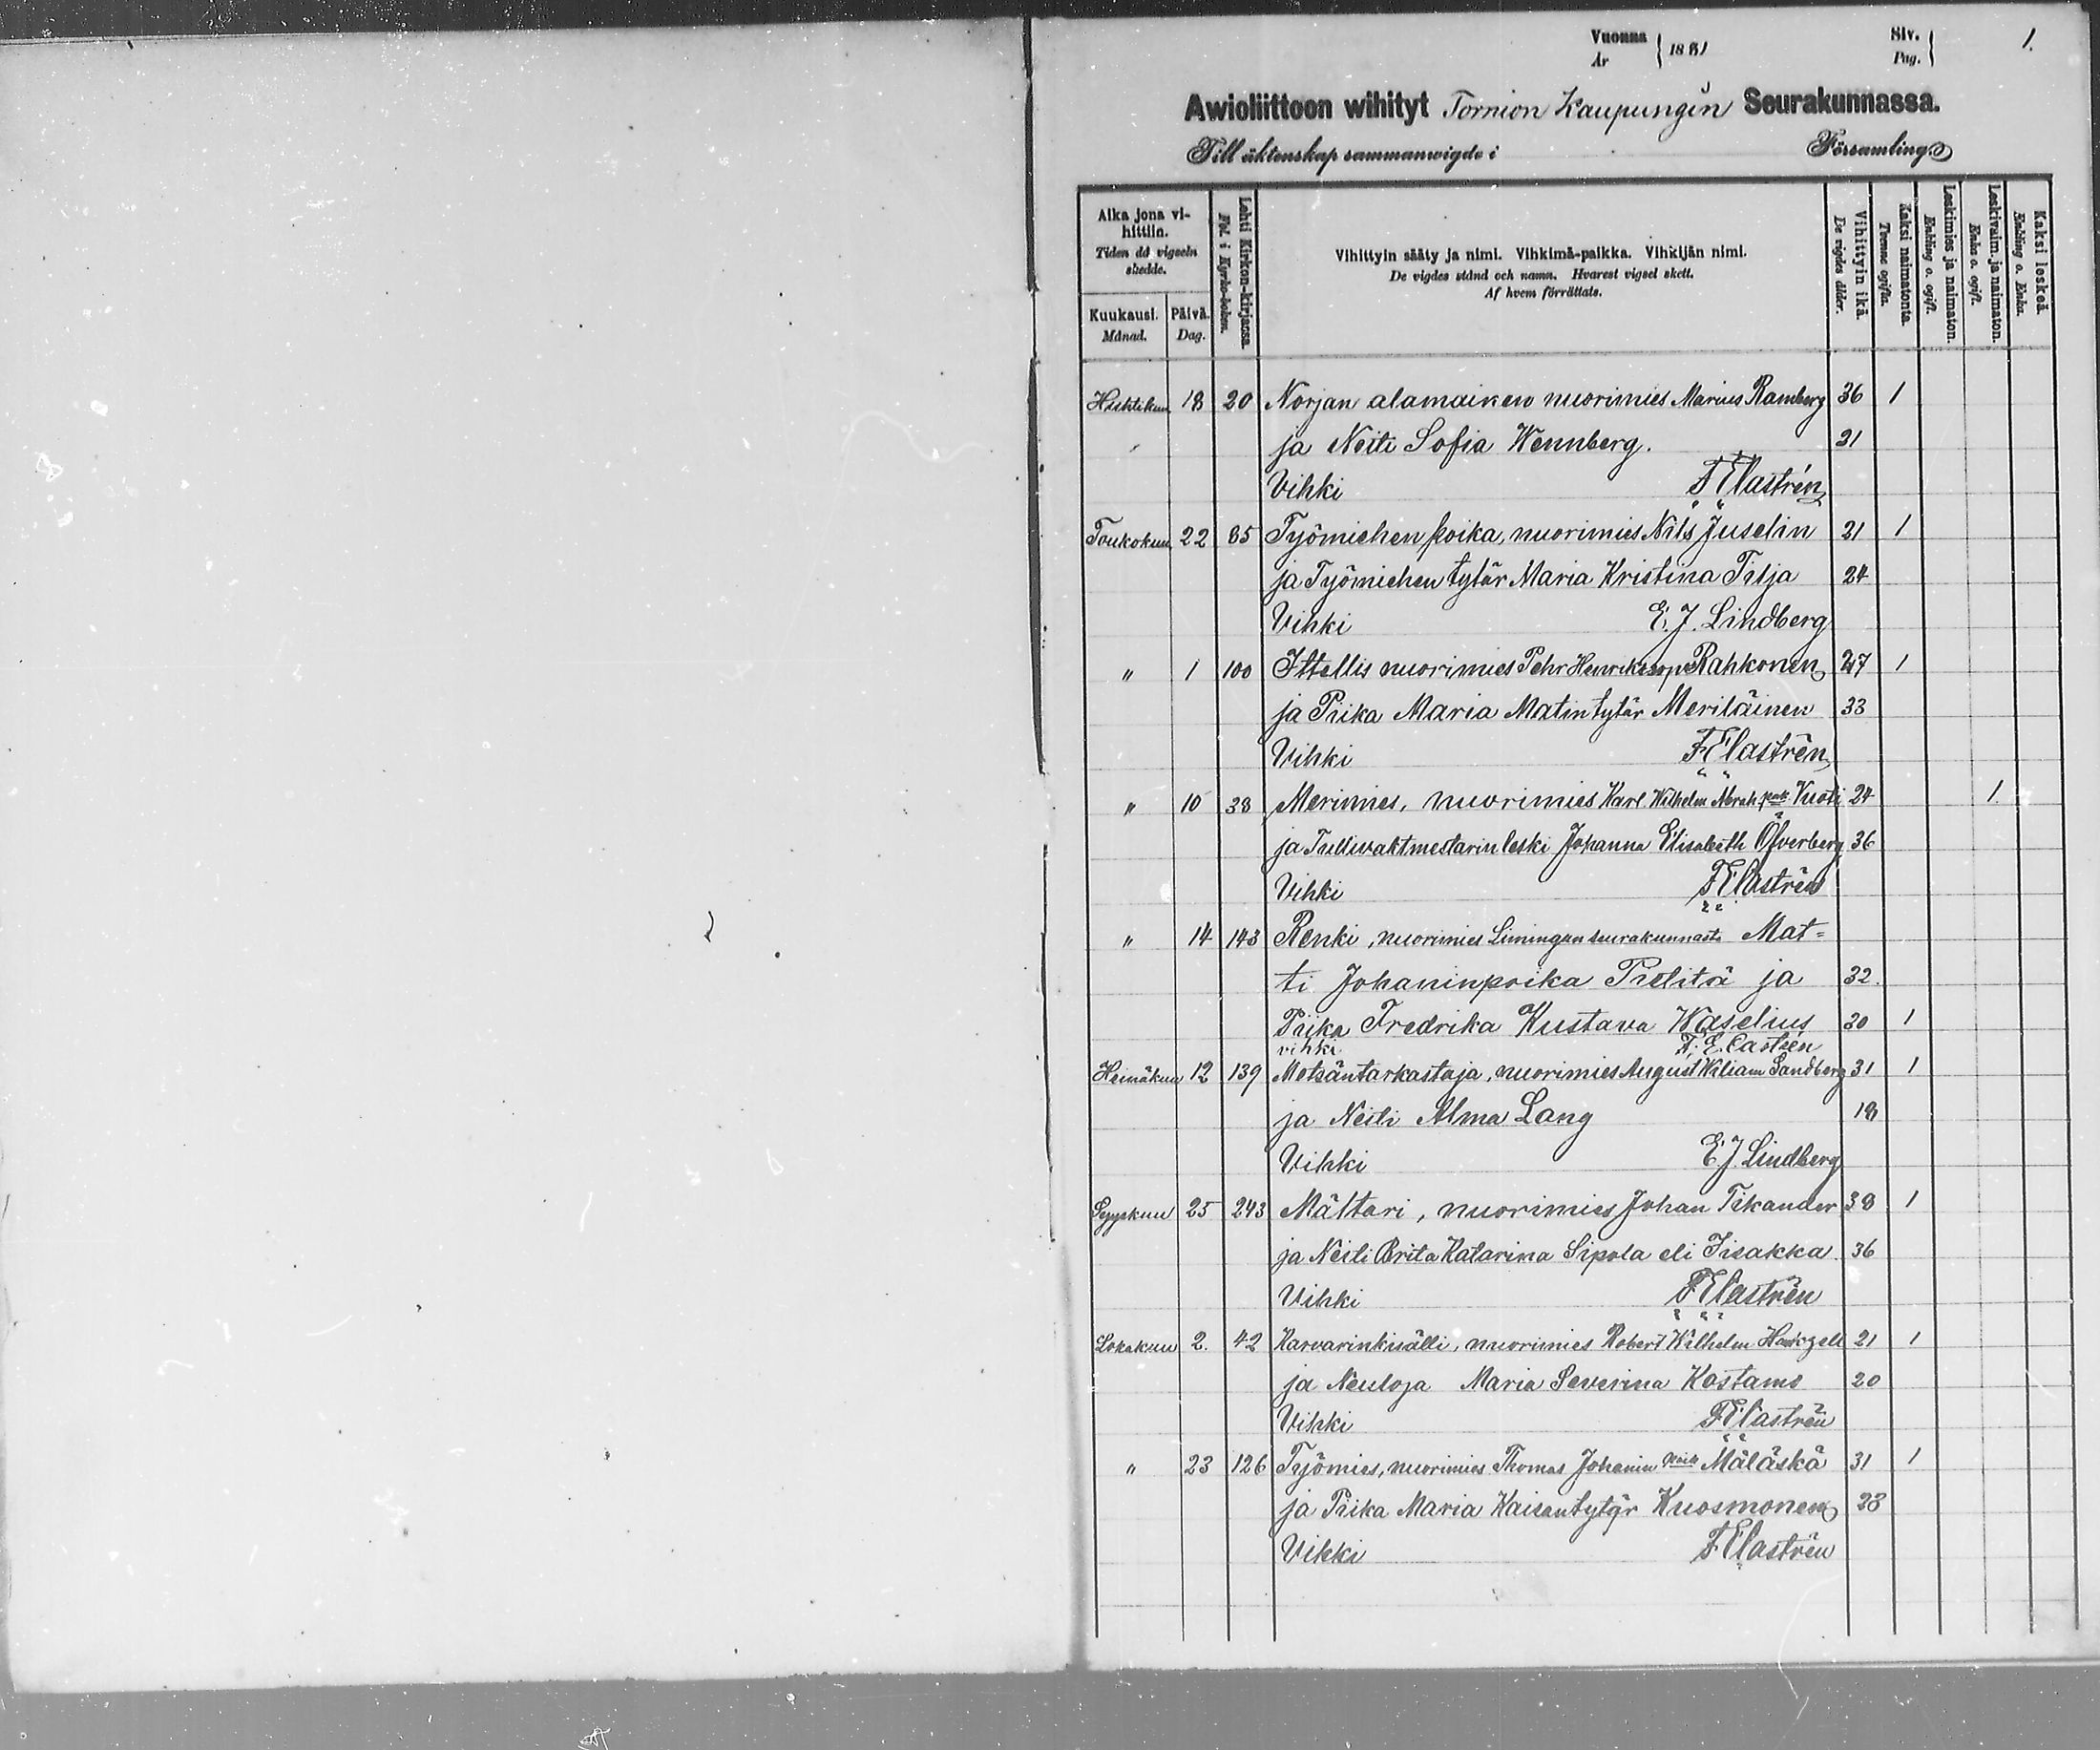 Vuonna 1881 Siv. 1.
År Pag.
Awioliittoon wihityt Tornion Kaupungin Seurakunnassa.
Till äktenskap sammanwigde i Församling
Aika jona vihittiin.
Tiden då vigseln skedde.
Kuukausi. Månad.
Päivä. Dag.
Lehti Kirkon-kirjassa.
Fol. i Kyrko-boken.
Vihittyin sääty ja nimi. Vihkimä-paikka. Vihkijän nimi.
De vigdes stånd och namn. Hvarest vigsel skett.
Af hvem förrättats.
Vihittyin ikä.
De vigdes ålder.
Kaksi naimatonta.
Tvenne ogifta.
Leskimies ja naimaton.
Enkling o. ogift.
Leskivaim. ja naimaton.
Enka o. ogift.
Kaksi leskeä.
Enkling o. Enka.
Huhtikuu 18 20 Norjan alamainen nuorimies Marius Ramberg 36 1
ja Neiti Sofia Wennberg. 21
Vihki F E Castrén
Toukokuu 22 85 Työmiehen poika, nuorimies Nils Juselin 21 1
ja Työmiehen tytär Maria Kristina Tilja 24
Vihki E. J. Lindberg
" 1 100 Ittellis nuorimies Pehr Henriksson Rahkonen 27 1
ja Piika Maria Matintytär Meriläinen 33
Vihki F E Castrén
" 10 38 Merimies, nuorimies Karl Wilhelm Abrah. poik Vuoti 24 1
ja Tullivaktmestarin leski Johanna Elisabeth Öfverberg 36
Vihki F E Castrén
" 14 143 Renki, nuorimies Limingan seurakunnasta Mat=
ti Johaninpoika Pielitä ja 32.
Piika Fredrika Kustava Waselius 30 1
vihki F. E. Castren
Heinäkuu 12 139 Metsäntarkastaja, nuorimies August Wiliam Sandberg 31 1
ja Neiti Alma Lang 18
Vihki E J Lindberg
Syyskuu 25 243 Mältari, nuorimies Johan Tikander 38 1
ja Neiti Brita Katarina Sipola eli Iisakka. 36
Vihki F E Castrén
Lokakuu 2. 42 Karvarinkisälli, nuorimies Robert Wilhelm 21 1
ja Neuloja Maria Severina Kostamo 20
Vihki F E Castrén
" 23 126 Työmies, nuorimies Thomas Johanin poik Mäläskä 31 1
ja Piika Maria Kaisantytär Kuosmonen 28
Vihki F E Castrén